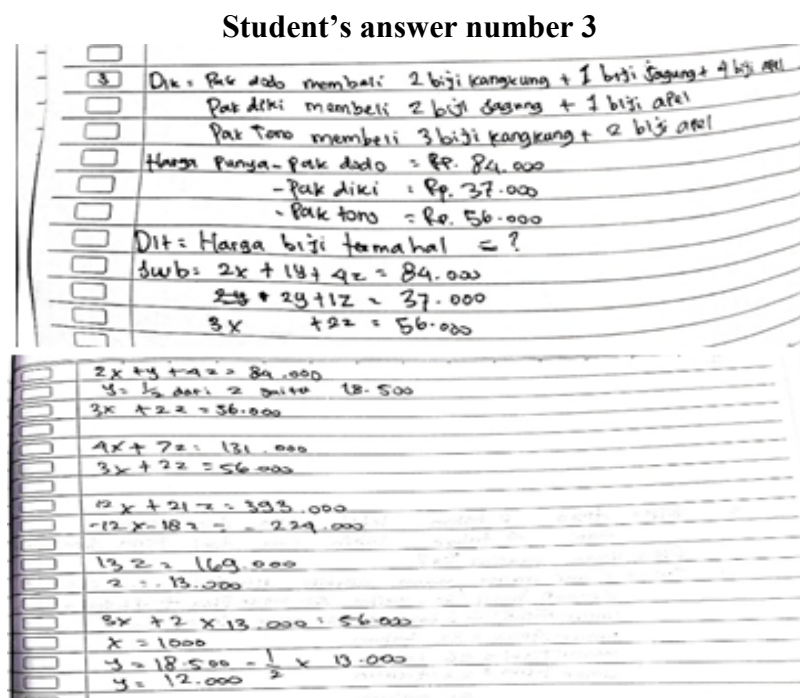 Student's answer number 3
3 Dik : Pak dodo membeli 2 biji kangkung + 1 biji jagung + 4 biji apel
Pak diki membeli 2 biji jagung + 1 biji apel
Pak Tono membeli 3 biji kangkung + 2 biji apel
Harga Punya - Pak dodo = RP. 84.000
- Pak diki : Rp. 37.000
- Pak tono = Rp. 56.000
Dit = Harga biji termahal = ?
Jwb : 2x + 1y + 4z = 84.000
2y + 1z = 37.000
3x + 2z = 56.000
2x + y + 4z = 84.000
y = 1/2 dari z yaitu 18.500
3x + 2z = 56.000
4x + 7z = 131.000
3x + 2z = 56.000
12x + 21z = 393.000
-12x - 18z = - 224.000
13z = 169.000
z = 13.000
3x + 2 x 13.000 = 56.000
x = 1000
y = 18.500 - 1/2 x 13.000
y = 12.000